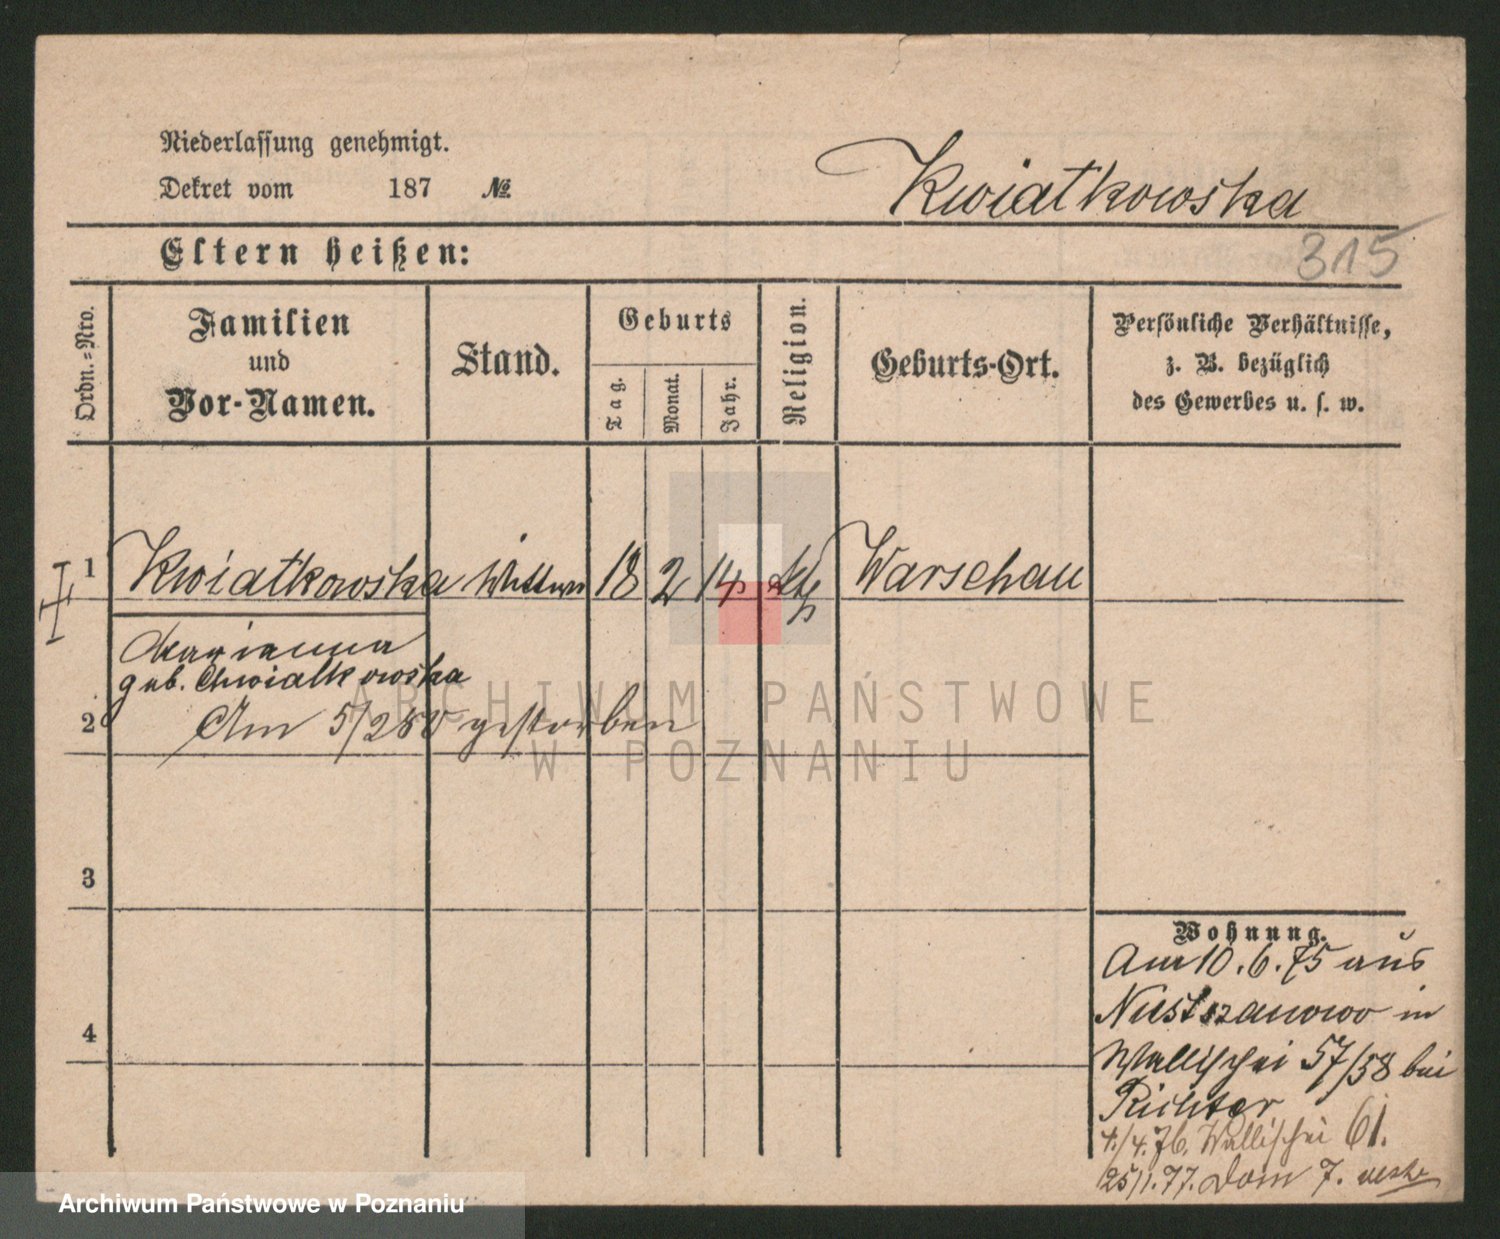 Niederlassung genehmigt.
Dekret vom 187 №
Kwiatkowska
Eltern heißen:
315
Ordn.=Nro.
Familien
und
Vor-Namen.
Stand.
Geburts
Tag.
Monat.
Jahr.
Religion.
Geburts-Ort.
Persönliche Verhältnisse,
z. B. bezüglich
des Gewerbes u. s. w.
1 Kwiatkowska Wittwe 18 2 14 kth Warschau
Marianna
geb. Chwiałkowska
2 Am 5/2 80 gestorben
3
4
Wohnung.
Am 10.6.75 aus
in
Wallischei 57/58 bei
Richter
4./4.76. Wallischei 61.
25/1.77. Dom 7.
ARCHIWUM PAŃSTWOWE
W POZNANIU
Archiwum Państwowe w Poznaniu